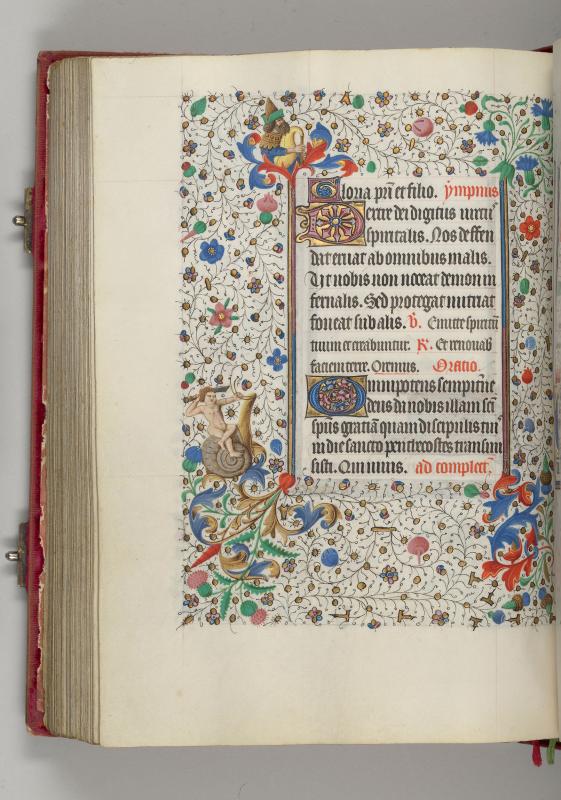 Gloria pr̃i et filio. ympnus
Dextre dei digitus uirtꝰ
spiritalis. Nos deffen
dat eruat ab omnibus malis.
Vt nobis non noceat demon in
fernalis. Sed protegat nutriat
foueat sub alis. v̄. Emitte spiritū
tuum et creabuntur. R̄. Et renouab̄
faciem terre. Oremus. Oratio.
Omnipotens sempit̄ne
deus da nobis illam sc̄i
sp̄us gratiā quam discipulis tuis
in die sancto penthecostes transmi
sisti. Qui uiuis. ad complect̄.